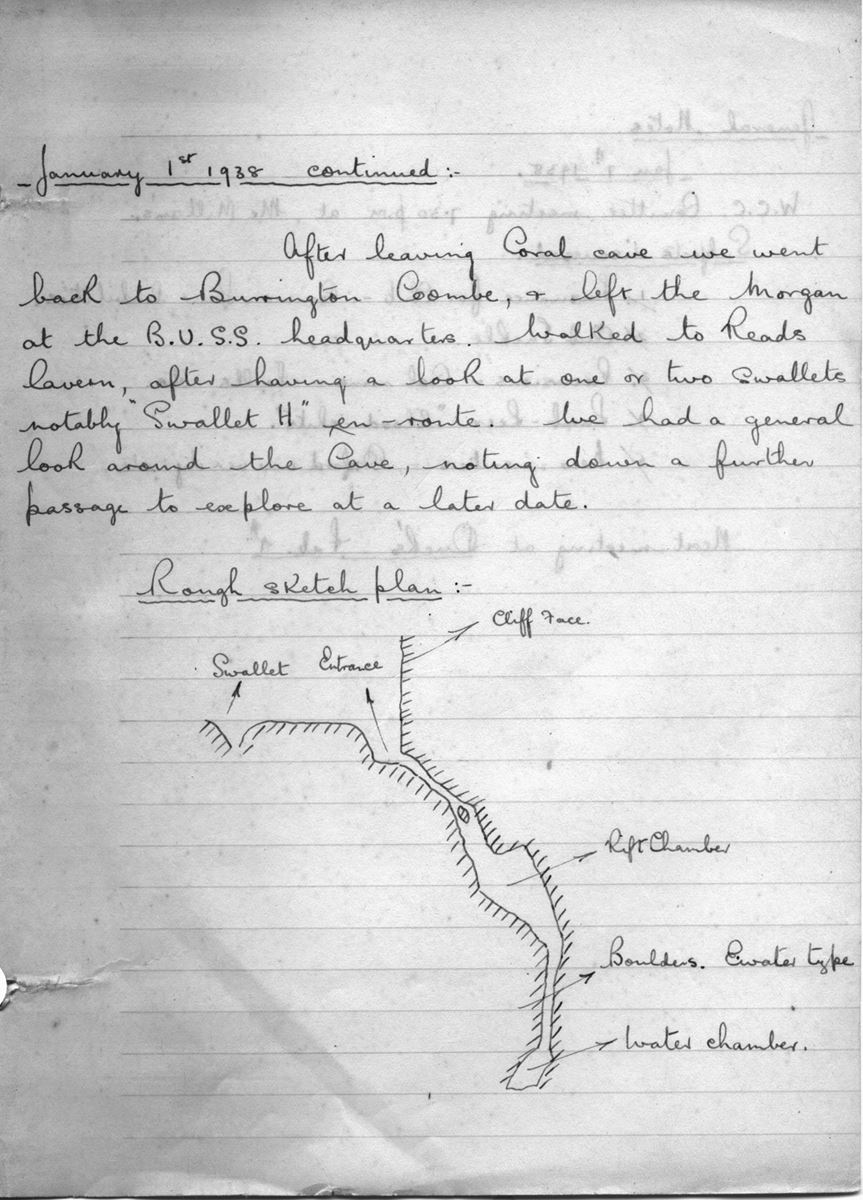 January 1st 1938 continued :-
After leaving Coral cave we went
back to Burrington Coombe, & left the Morgan
at the B.U.S.S. headquarters. Walked to Reads
Cavern, after having a look at one or two swallets
notably "Swallet H" en-route. We had a general
look around the Cave, noting down a further
passage to explore at a later date.
Rough sketch plan :-
Cliff Face.
Swallet Entrance
Rift Chamber
Boulders. Ewater type
Water chamber.